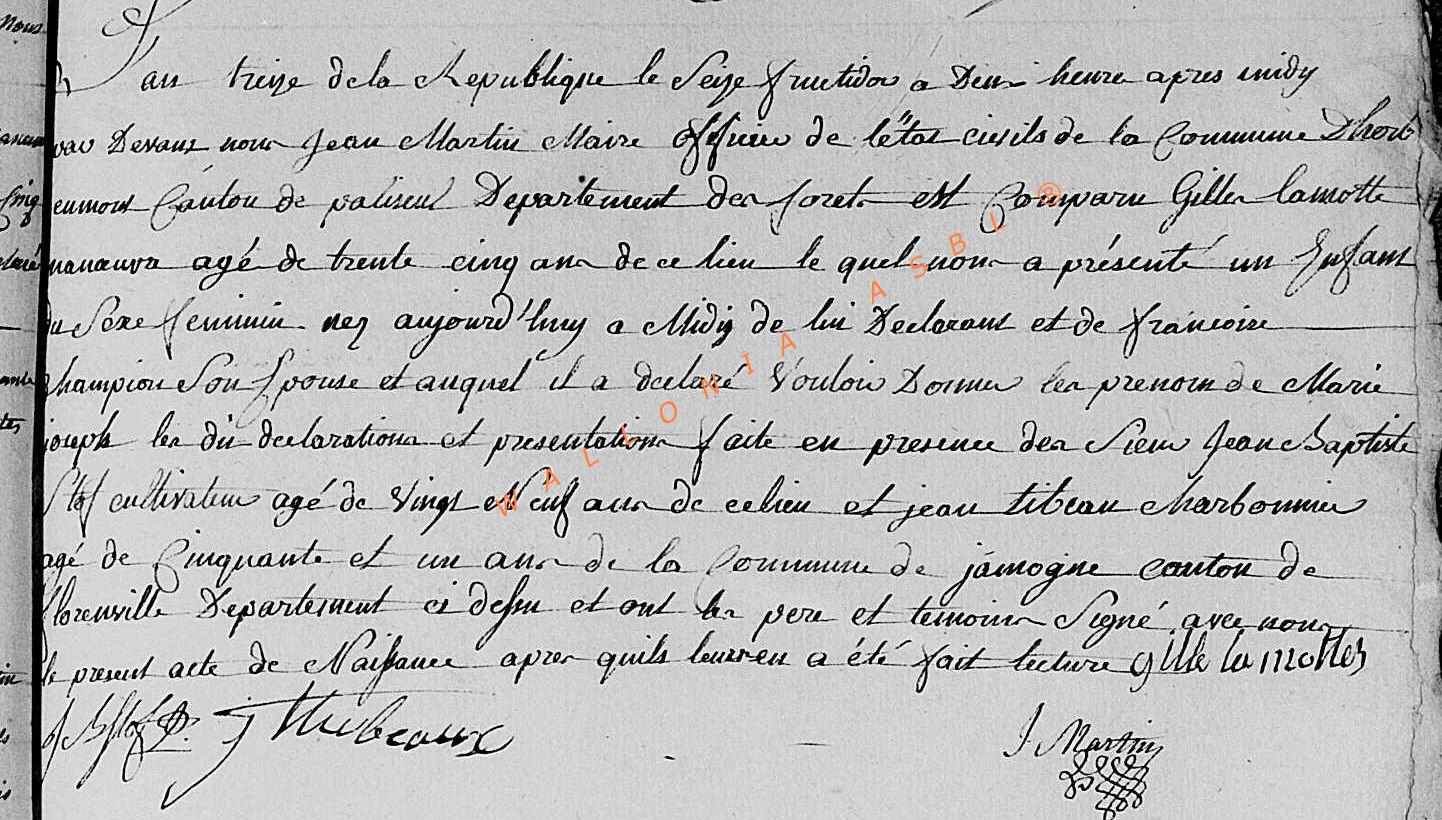 L'an treize de la Republique le Seize fructidor a Deux heure apres midy
par Devant nous Jean Martin Maire officier de l'état civils de la Commune Dherb
eumont Canton de paliseul Departement des forets est Comparu Gilles lamotte
manœuvre agé de trente cinq ans de ce lieu le quel nous a présenté un Enfant
du Sexe feminin nez aujourd'huy a Midy de lui Declarant et de francoise
Champion Son Epouse et auquel il a declaré Vouloir Donner les prenoms de Marie
joseph les dit declarations et presentations faite en presence des Sieur Jean Baptiste
Stof cultivateur agé de Vingt et Neuf ans de ce lieu et jean tibeau charbonnier
agé de Cinquante et un ans de la Commune de jamogne canton de
florenville Departement ci dessu et ont les pere et temoins Signé avec nous
le present acte de Naissance apres quils leurs en a été fait lecture gille la mottes
J B Stof J thibeaux J Martin
nous
Cinq
W A L L O N I A A S B L ®